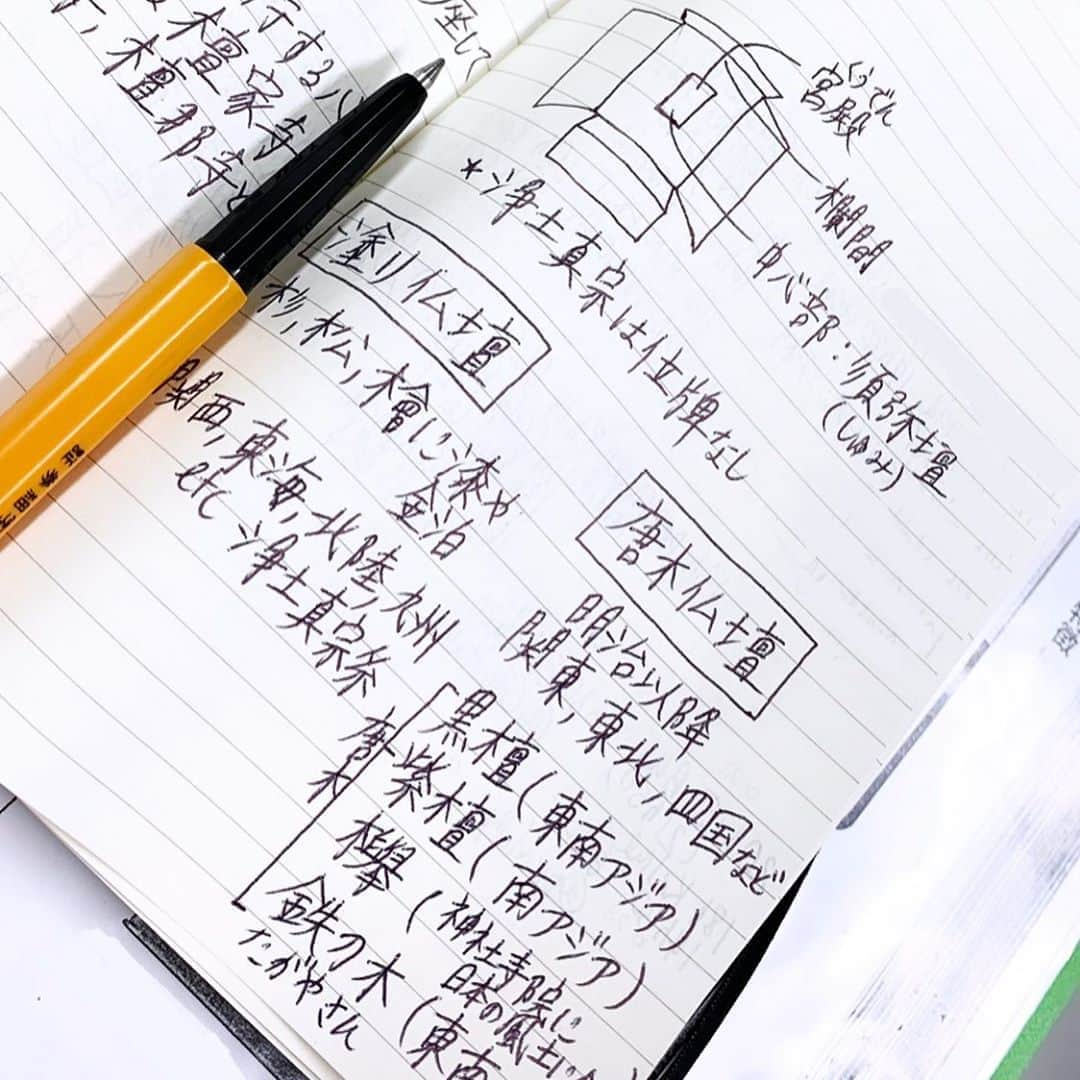 座して
行する
檀家寺
檀那寺と
くうでん
宮殿
欄間
中心部:須弥壇
(しゅみ)
*浄土真宗は位牌なし
塗り仏壇
杉,松,檜に漆や
金泊
関西,東海,北陸,九州
etc 浄土真宗系
唐木仏壇
明治以降
関東,東北,四国など
唐木
黒檀(東南アジア)
紫檀(南アジア)
欅(神社寺院に
日本の風土に
鉄刀木(東南
たがやさん